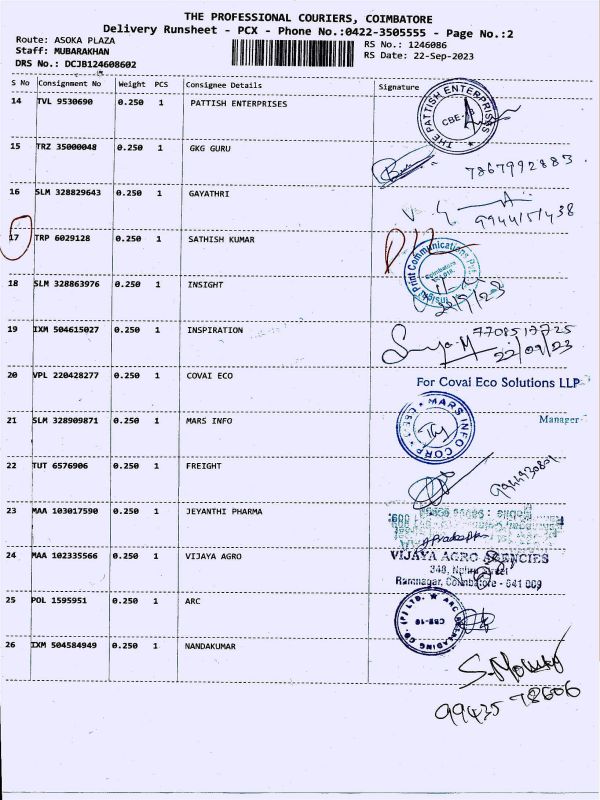 THE PROFESSIONAL COURIERS, COIMBATORE
Delivery Runsheet - PCX - Phone No.:0422-3505555 - Page No.:2
Route: ASOKA PLAZA
Staff: MUBARAKHAN
DRS No.: DCJB124608602
RS No.: 1246086
RS Date: 22-Sep-2023
S No Consignment No Weight PCS Consignee Details Signature
14 TVL 9530690 0.250 1 PATTISH ENTERPRISES
THE PATTISH ENTERPRISES
15 TRZ 35000048 0.250 1 GKG GURU
7867992883
16 SLM 328829643 0.250 1 GAYATHRI
17 TRP 6029128 0.250 1 SATHISH KUMAR
18 SLM 328863976 0.250 1 INSIGHT
Insight Print Communications Pvt.
Coimbatore
19 IXM 504615027 0.250 1 INSPIRATION
22/09/23
20 VPL 220428277 0.250 1 COVAI ECO
For Covai Eco Solutions LLP
Manager
21 SLM 328909871 0.250 1 MARS INFO
MARS INFO CORP
22 TUT 6576906 0.250 1 FREIGHT
9944930801
23 MAA 103017590 0.250 1 JEYANTHI PHARMA
24 MAA 102335566 0.250 1 VIJAYA AGRO
VIJAYA AGRO AGENCIES
Ramnagar, Coimbatore - 641 009
25 POL 1595951 0.250 1 ARC
26 IXM 504584949 0.250 1 NANDAKUMAR
99435 78606